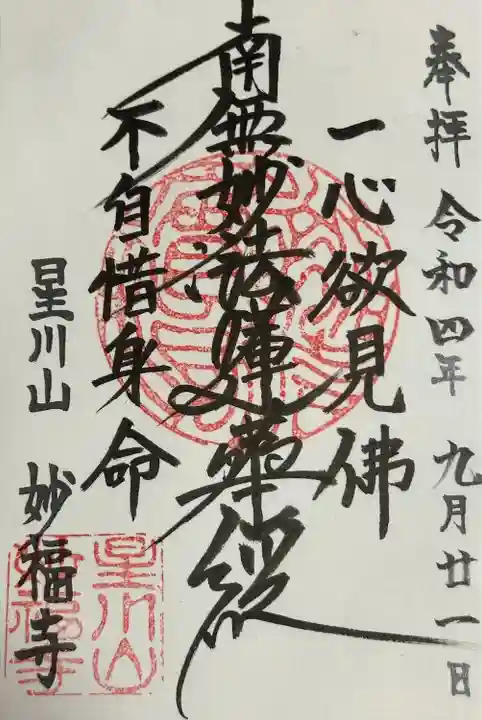 奉拝 令和四年 九月廿一日
一心欲見佛
南無妙法蓮華経
不自惜身命
星川山 妙福寺
星川山
妙福寺